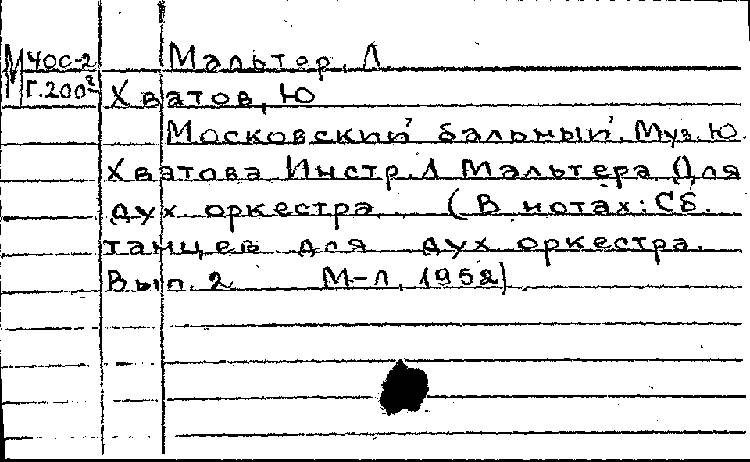 М ЧОС-2 Мальтер, Л
Г.200² Хватов, Ю
Московский бальный. Муз. Ю.
Хватова Инстр. Л Мальтера Для
дух оркестра (В нотах: Сб.
танцев для дух оркестра.
Вып. 2 М-Л, 1952)